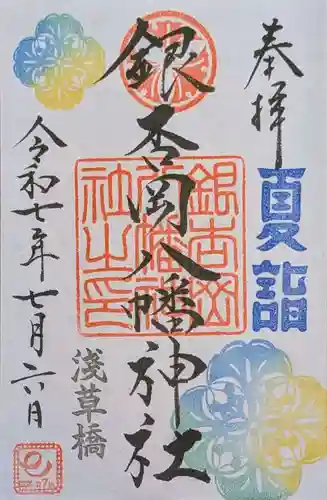 奉拝
夏詣
銀杏岡八幡神社
銀杏岡
八幡神
社之印
浅草橋
令和七年七月六日